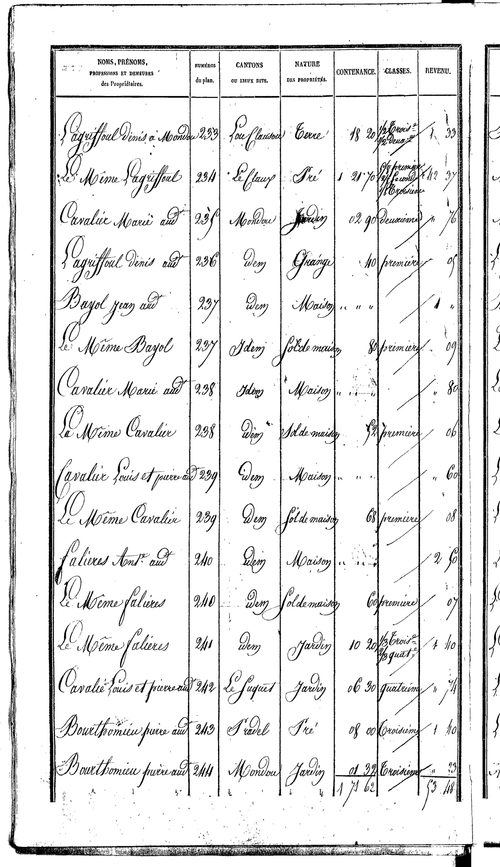 NOMS, PRÉNOMS, PROFESSIONS ET DEMEURES des Propriétaires. NUMÉROS du plan. CANTONS OU LIEUX DITS. NATURE DES PROPRIÉTÉS. CONTENANCE. CLASSES. REVENU.
Lagriffoul denis à Mondou 233 Lou Clausou Terre 18 20 1/2 Trois. 1/2 1 33
Le Même Lagriffoul 234 Le Claux Pré 1 21 70 premiere Second Troisieme 42 37
Cavalié Marie aud 235 Mondou Jardin 02 90 deuxieme " 76
Lagriffoul denis aud 236 idem Grange 40 premiere 05
Bayol Jean aud 237 idem Maison " " " 1 "
Le Même Bayol 237 Idem Sol de maison 80 premiere 09
Cavalier Marie aud 238 Idem Maison " " " " 80
La Même Cavalier 238 idem Sol de maison 52 premiere 06
Cavalier Louis et pierre aud 239 idem Maison " " " " 60
Le Même Cavalier 239 idem Sol de maison 68 premiere 08
falières Ant.e aud 240 idem Maison " " " 2 50
Le Même falières 240 idem Sol de maison 60 premiere 07
Le Même falières 241 idem Jardin 10 20 1/2 Trois. 1/2 quat. 1 40
Cavalié Louis et pierre aud 242 Le Suquet Jardin 06 30 quatrieme " 74
Bourthomieu pierre aud 243 Pradel Pré 08 00 Troisieme 1 40
Bourthomieu pierre aud 244 Mondou Jardin 01 32 Troisieme " 23
1 71 62 53 48